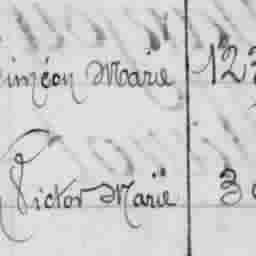 iméon Marie 12
Victor Marie 3